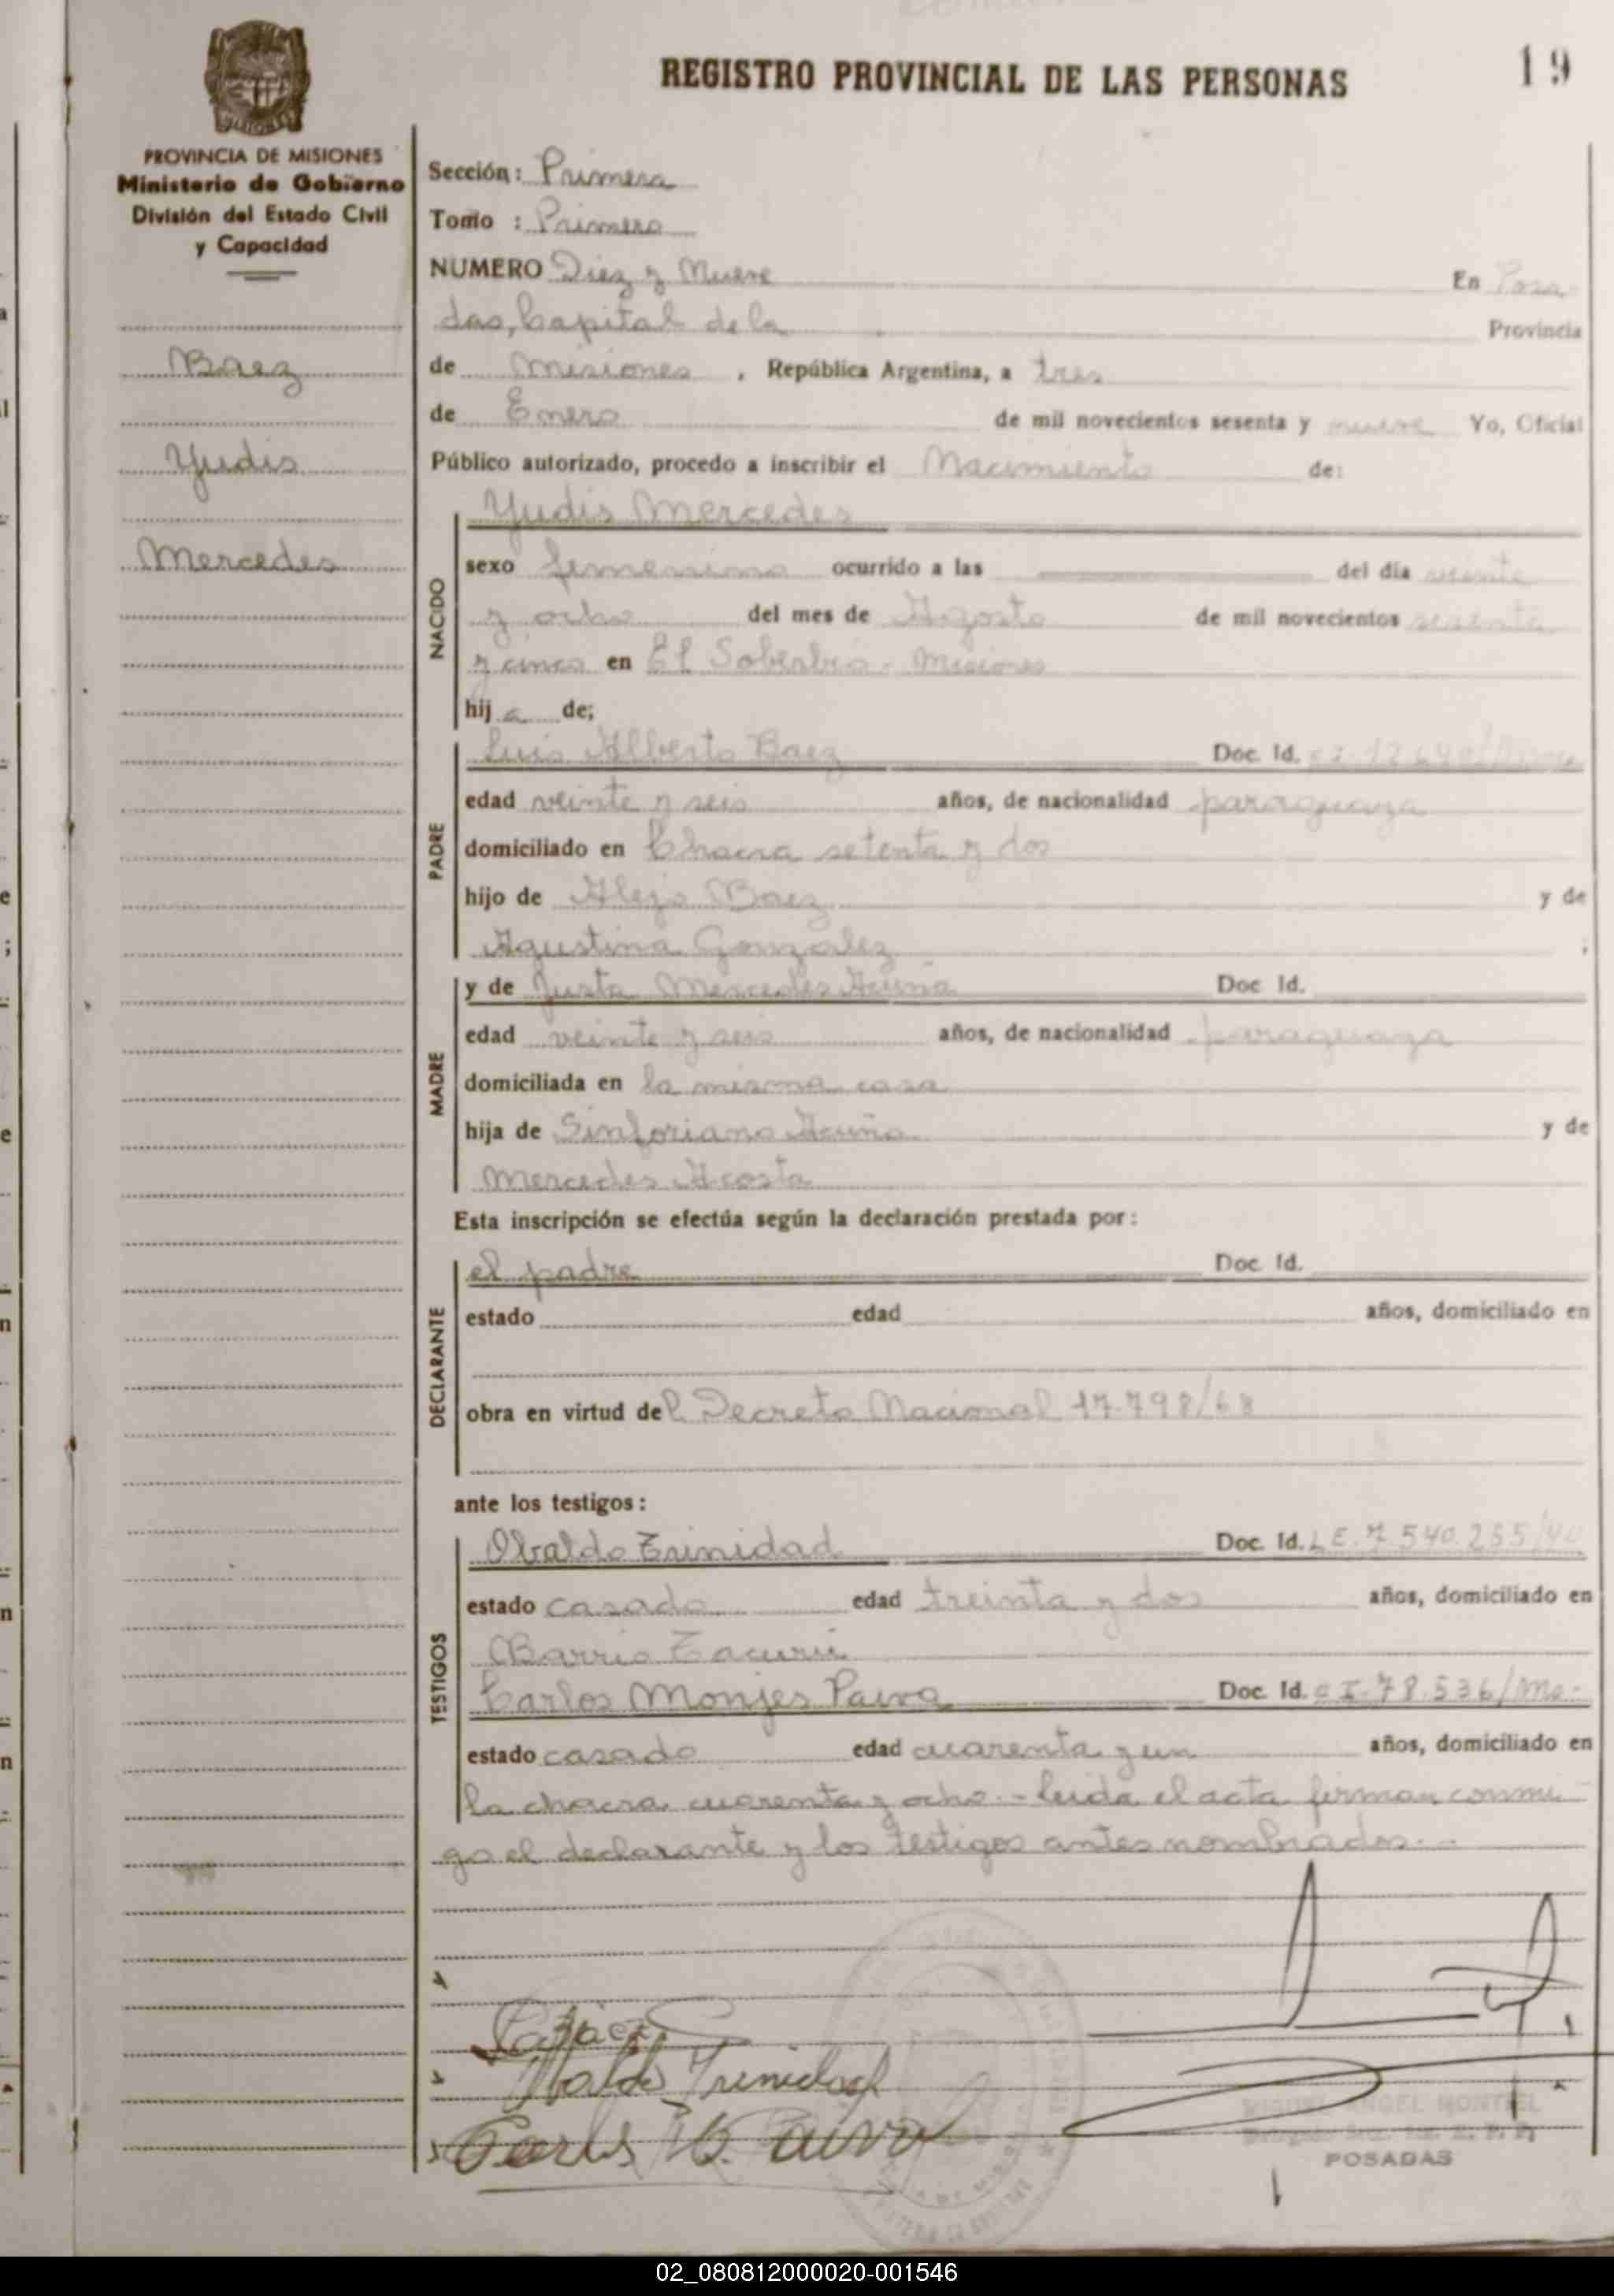 REGISTRO PROVINCIAL DE LAS PERSONAS
19
MISIONES
PROVINCIA DE MISIONES
Ministerio de Gobierno
División del Estado Civil
y Capacidad
Baez
Yudis
Mercedes
Sección: Primera
Tomo : Primero
NUMERO Diez y Nueve En Posa
das, Capital de la Provincia
de Misiones , República Argentina, a tres
de Enero de mil novecientos sesenta y nueve Yo, Oficial
Público autorizado, procedo a inscribir el Nacimiento de:
NACIDO
Yudis Mercedes
sexo femenino ocurrido a las del día veinte
y ocho del mes de Agosto de mil novecientos sesenta
y cinco en El Soberbio - Misiones
hij a de;
PADRE
Luis Alberto Baez Doc. Id.
edad veinte y seis años, de nacionalidad paraguaya
domiciliado en Chacra setenta y dos
hijo de Alejo Baez y de
Agustina Gonzalez ;
MADRE
y de Justa Mercedes Acuña Doc Id.
edad veinte y seis años, de nacionalidad paraguaya
domiciliada en la misma casa
hija de Sinforiano Acuña y de
Mercedes Acosta
Esta inscripción se efectúa según la declaración prestada por:
DECLARANTE
el padre Doc. Id.
estado edad años, domiciliado en
obra en virtud del Decreto Nacional 17.798/68
ante los testigos:
TESTIGOS
Obaldo Trinidad Doc. Id. L E. 7.540.255/40
estado casado edad treinta y dos años, domiciliado en
Barrio Tacurú
Carlos Monjes Paiva Doc. Id. C I. 78.536/Mes.
estado casado edad cuarenta y un años, domiciliado en
la chacra cuarenta y ocho.- Leída el acta firman conmi
go el declarante y los testigos antes nombrados.-
Obaldo Trinidad
Carlos M. Paiva
MIGUEL ANGEL MONTIEL
POSADAS
02_080812000020-001546